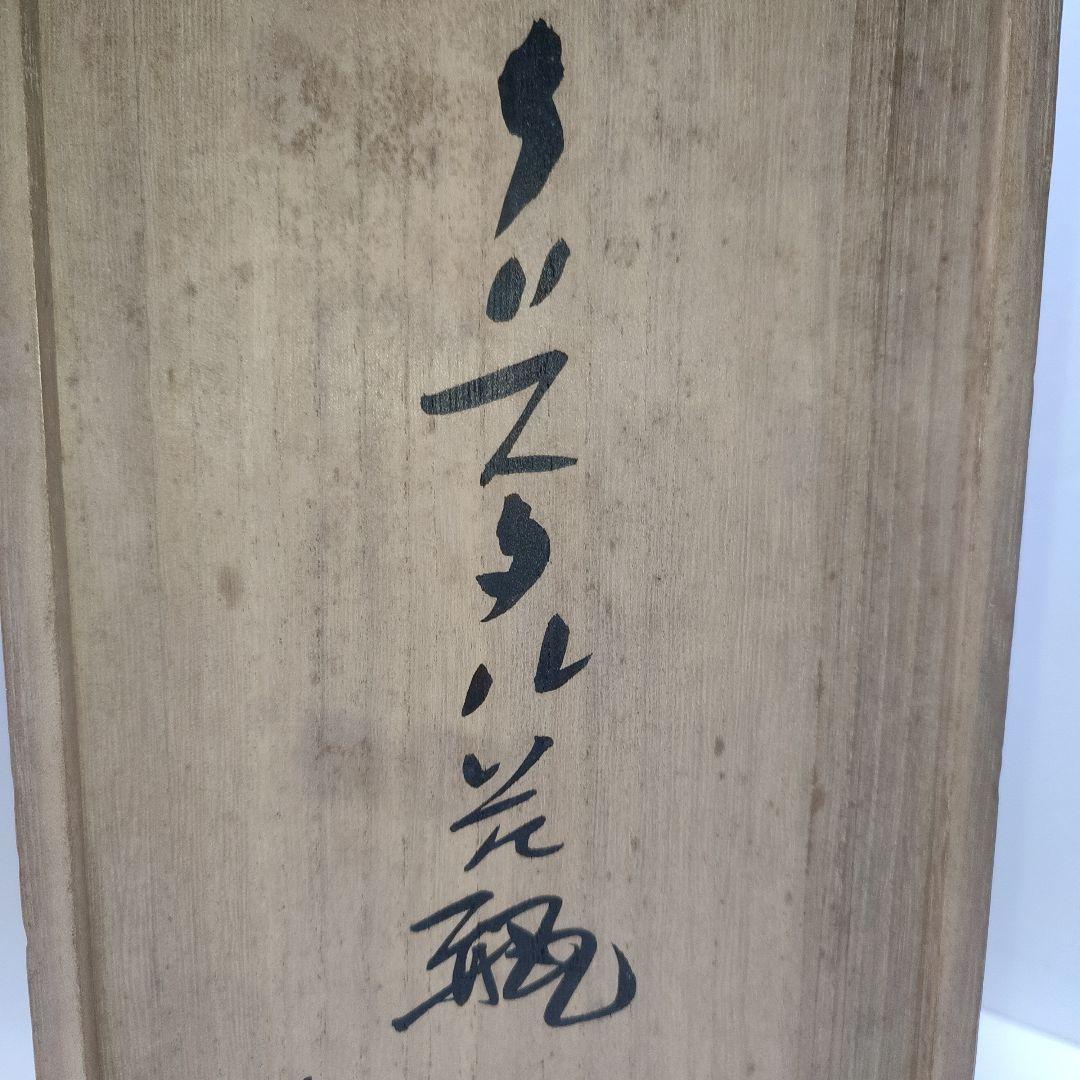 クリスタル花瓶